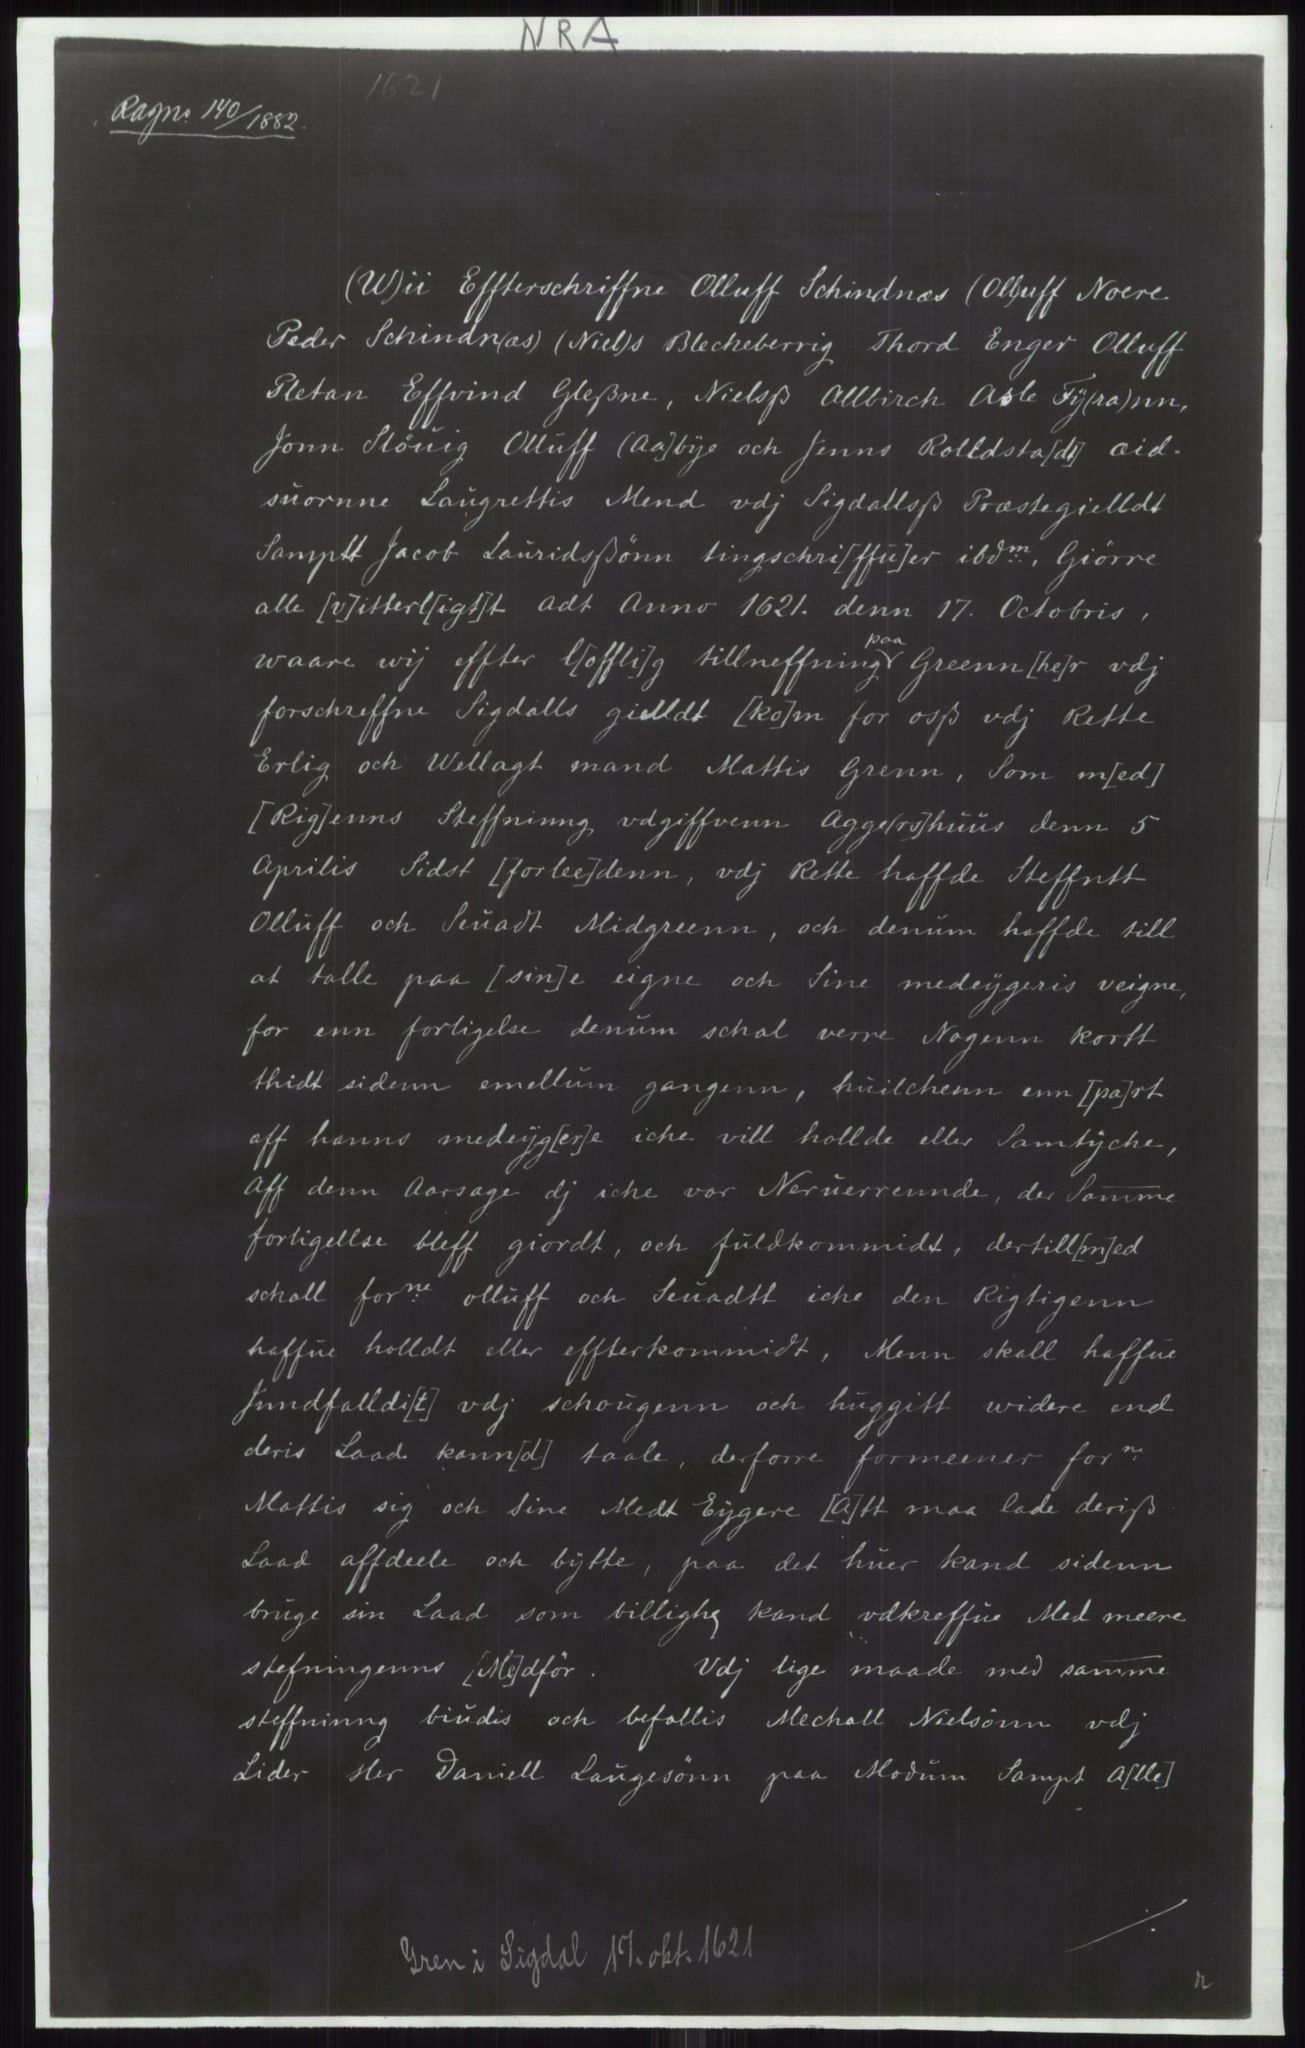 NRA
1621
Ragn. 140/1882.
(W)ii Effterschriffne Olluff Schindnæs (Oll)uff Noere
Peder Schindn(æs) (Niel)s Blecheberrig Thord Enger Olluff
Pletan Effvind Gleßne, Nielsß Allbirch Asle Fÿ(ra)nn,
Jonn Slöuig Olluff (Aa]bÿe och Jenns Rolldsta[dt] æid-
suornne Laugrettis Mend vdj Sigdallsß Præstegielldt
Samptt Jacob Lauridsßönn tingschri[ffu]er ibdm, Giörre
alle [v]itterl[igt]t adt Anno 1621. denn 17. Octobris,
waare wij effter l[offli]g tillneffning paa Greenn [he]r vdj
forschreffne Sigdalls gielldt [ko]m for osß vdj Rette
Erlig och Wellagt mand Mattis Grenn, Som m[ed]
[Rig]enns Steffninng vdgiffvenn Agge(rs]huus denn 5
Aprilis Sidst [forlee]denn, vdj Rette haffde Steffntt
Olluff och Seuadt Midgreenn, och denum haffde till
at talle paa [sin]e eigne och Sine medeÿgeris veigne,
for enn forligelse denum schal verre Nogenn kortt
thidt sidenn emellum gangenn, huilchenn enn [pa]rt
aff hanns medeÿg[er]e iche vill hallde eller Samtÿche,
Aff denn Aarsage dj iche var Neruerrennde, der Samme
forligellse bleff giordt, och fuldkommidt, dertill[m]ed
schall forne olluff och Seuadtt iche den Rigtigenn
haffue holldt eller effterkommidt, Menn skall haffue
Jnndfalldi[t] vdj schougenn och huggitt widere end
deris Laad kann[d] taale, derforre formeener forne
Mattis sig och Sine Medt Eÿgere [A]tt maa lade derisß
Laad affdeele och bÿtte, paa det huer kand sidenn
bruge sin Laad som billighe kand vdkreffue Med meere
stefningenns [Me]dför. Vdj lige maade med samme
steffninng biudis och befallis Mechall Nielsönn vdj
Lider Her Daniell Laugesönn paa Modum Sampt A[lle]
Gren i Sigdal 17. okt. 1621